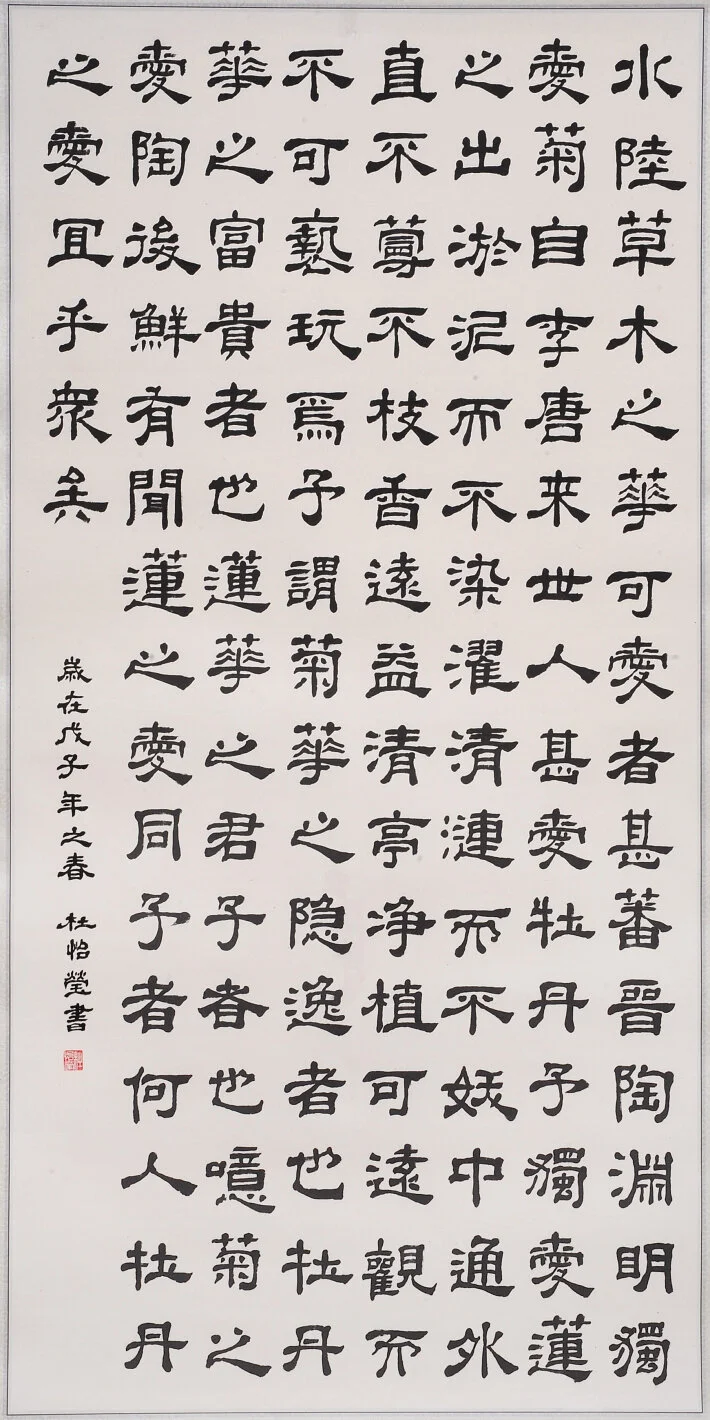 水陸草木之華可愛者甚蕃晉陶淵明獨
愛菊自李唐来世人甚愛牡丹予獨愛蓮
之出淤泥而不染濯清漣而不妖中通外
直不蔓不枝香遠益清亭净植可遠觀而
不可褻玩焉予謂菊華之隐逸者也牡丹
華之富貴者也蓮華之君子者也噫菊之
愛陶後鮮有聞蓮之愛同予者何人牡丹
之愛宜乎衆矣
歲在戊子年之春 杜怡瑩書